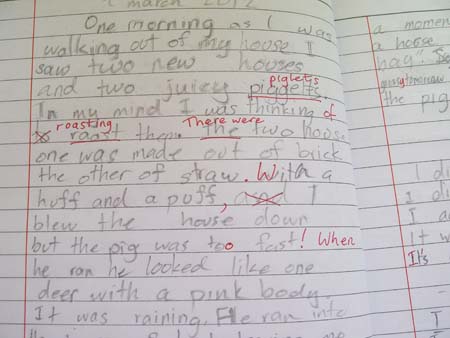 march 2012
One morning as I was
walking out of my house I
saw two new houses
and two juicy piggets.
piglets
In my mind I was thinking of
roasting
There were
roast them. the two house
one was made out of brick
the other of straw. With a
huff and a puff, and I
blew the house down
but the pig was too fast! When
he ran he looked like one
deer with a pink body
It was raining. He ran into
a momen
a house
hay!
the pig
I di
I di
I a
It w
It's
I